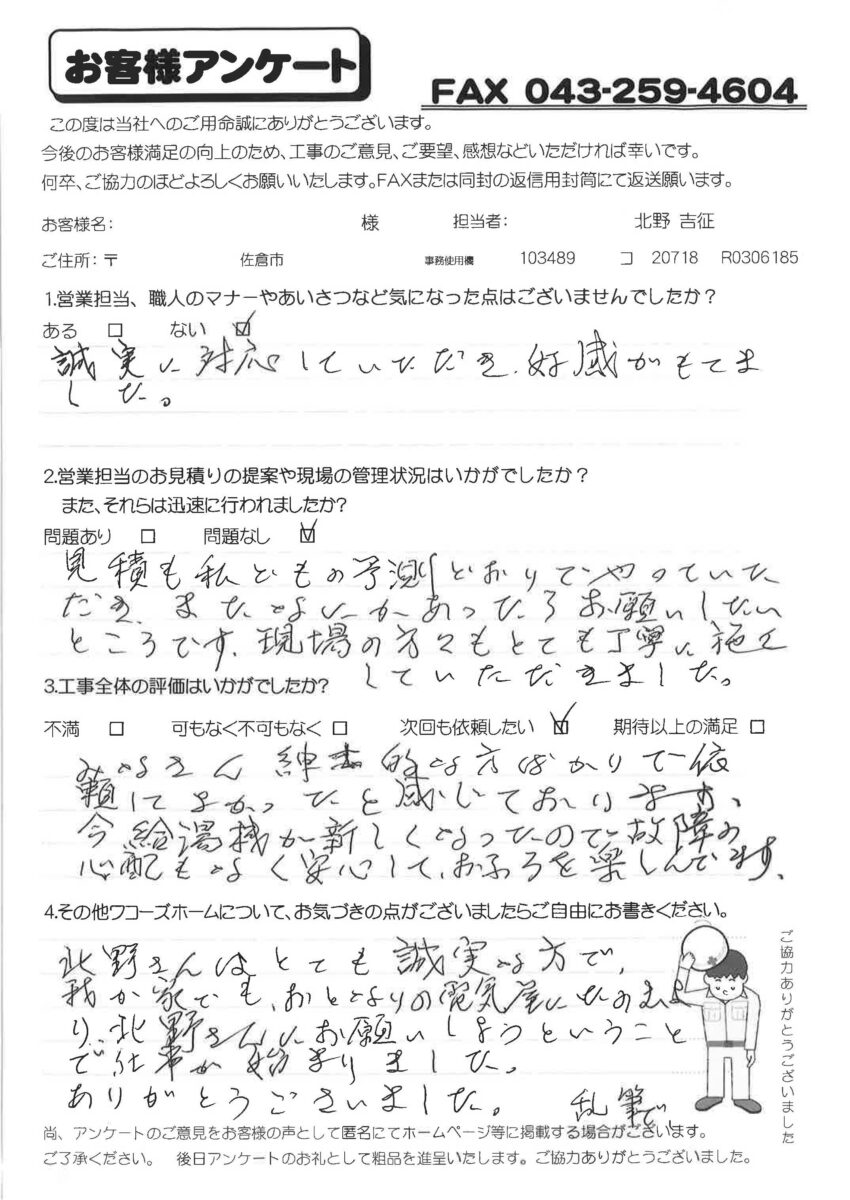 お客様アンケート
FAX 043-259-4604
この度は当社へのご用命誠にありがとうございます。
今後のお客様満足の向上のため、工事のご意見、ご要望、感想などいただければ幸いです。
何卒、ご協力のほどよろしくお願いいたします。FAXまたは同封の返信用封筒にて返送願います。
お客様名: 様 担当者: 北野 吉征
ご住所:〒 佐倉市 事務使用欄 103489 コ 20718 R0306185
1.営業担当、職人のマナーやあいさつなど気になった点はございませんでしたか?
ある □ ない ☑
誠実に対応していただき、好感がもてま
した。
2.営業担当のお見積りの提案や現場の管理状況はいかがでしたか?
また、それらは迅速に行われましたか?
問題あり □ 問題なし ☑
見積も私どもの予測どおりでやっていた
だき、またなにかあったらお願いしたい
ところです。現場の方々もとても丁寧に施工
していただきました。
3.工事全体の評価はいかがでしたか?
不満 □ 可もなく不可もなく □ 次回も依頼したい ☑ 期待以上の満足 □
みなさん紳士的な方ばかりで依
頼してよかったと感じております。
今給湯機が新しくなったので故障の
心配もなく安心して、おふろを楽しんでます。
4.その他ワコーズホームについて、お気づきの点がございましたらご自由にお書きください。
北野さんはとても誠実な方で、
我が家でも、おとなりの電気屋にたのむよ
り、北野さんにお願いしようということ
で仕事が始まりました。
ありがとうございました。 乱筆で、
ご協力ありがとうございました
尚、アンケートのご意見をお客様の声として匿名にてホームページ等に掲載する場合がございます。
ご了承ください。 後日アンケートのお礼として粗品を進呈いたします。ご協力ありがとうございました。